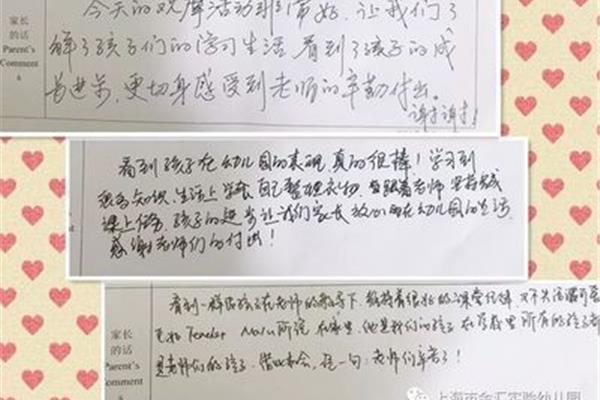 家长
的话
Parent's
Comment
s
今天的观摩活动非常好,让我们了
解了孩子们的学习生活,看到了孩子的成
长进步,更切身感受到老师的辛勤付出。
谢谢!
看到孩子在幼儿园的表现,真的很棒!学习到
很多知识,生活上学会自己整理衣物,
课上任务。孩子的进步让我们家长放心
感谢老师们的付出!
家长
的话
Parent's
Comment
s
看到一群孩子在老师的教导下,保持着很好的课堂纪律,
Teacher 所说 在家里,他是我们的孩子,在学校里所有的孩子都
是老师们的孩子。借此机会,说一句:老师们辛苦了!
上海市金汇实验幼儿园